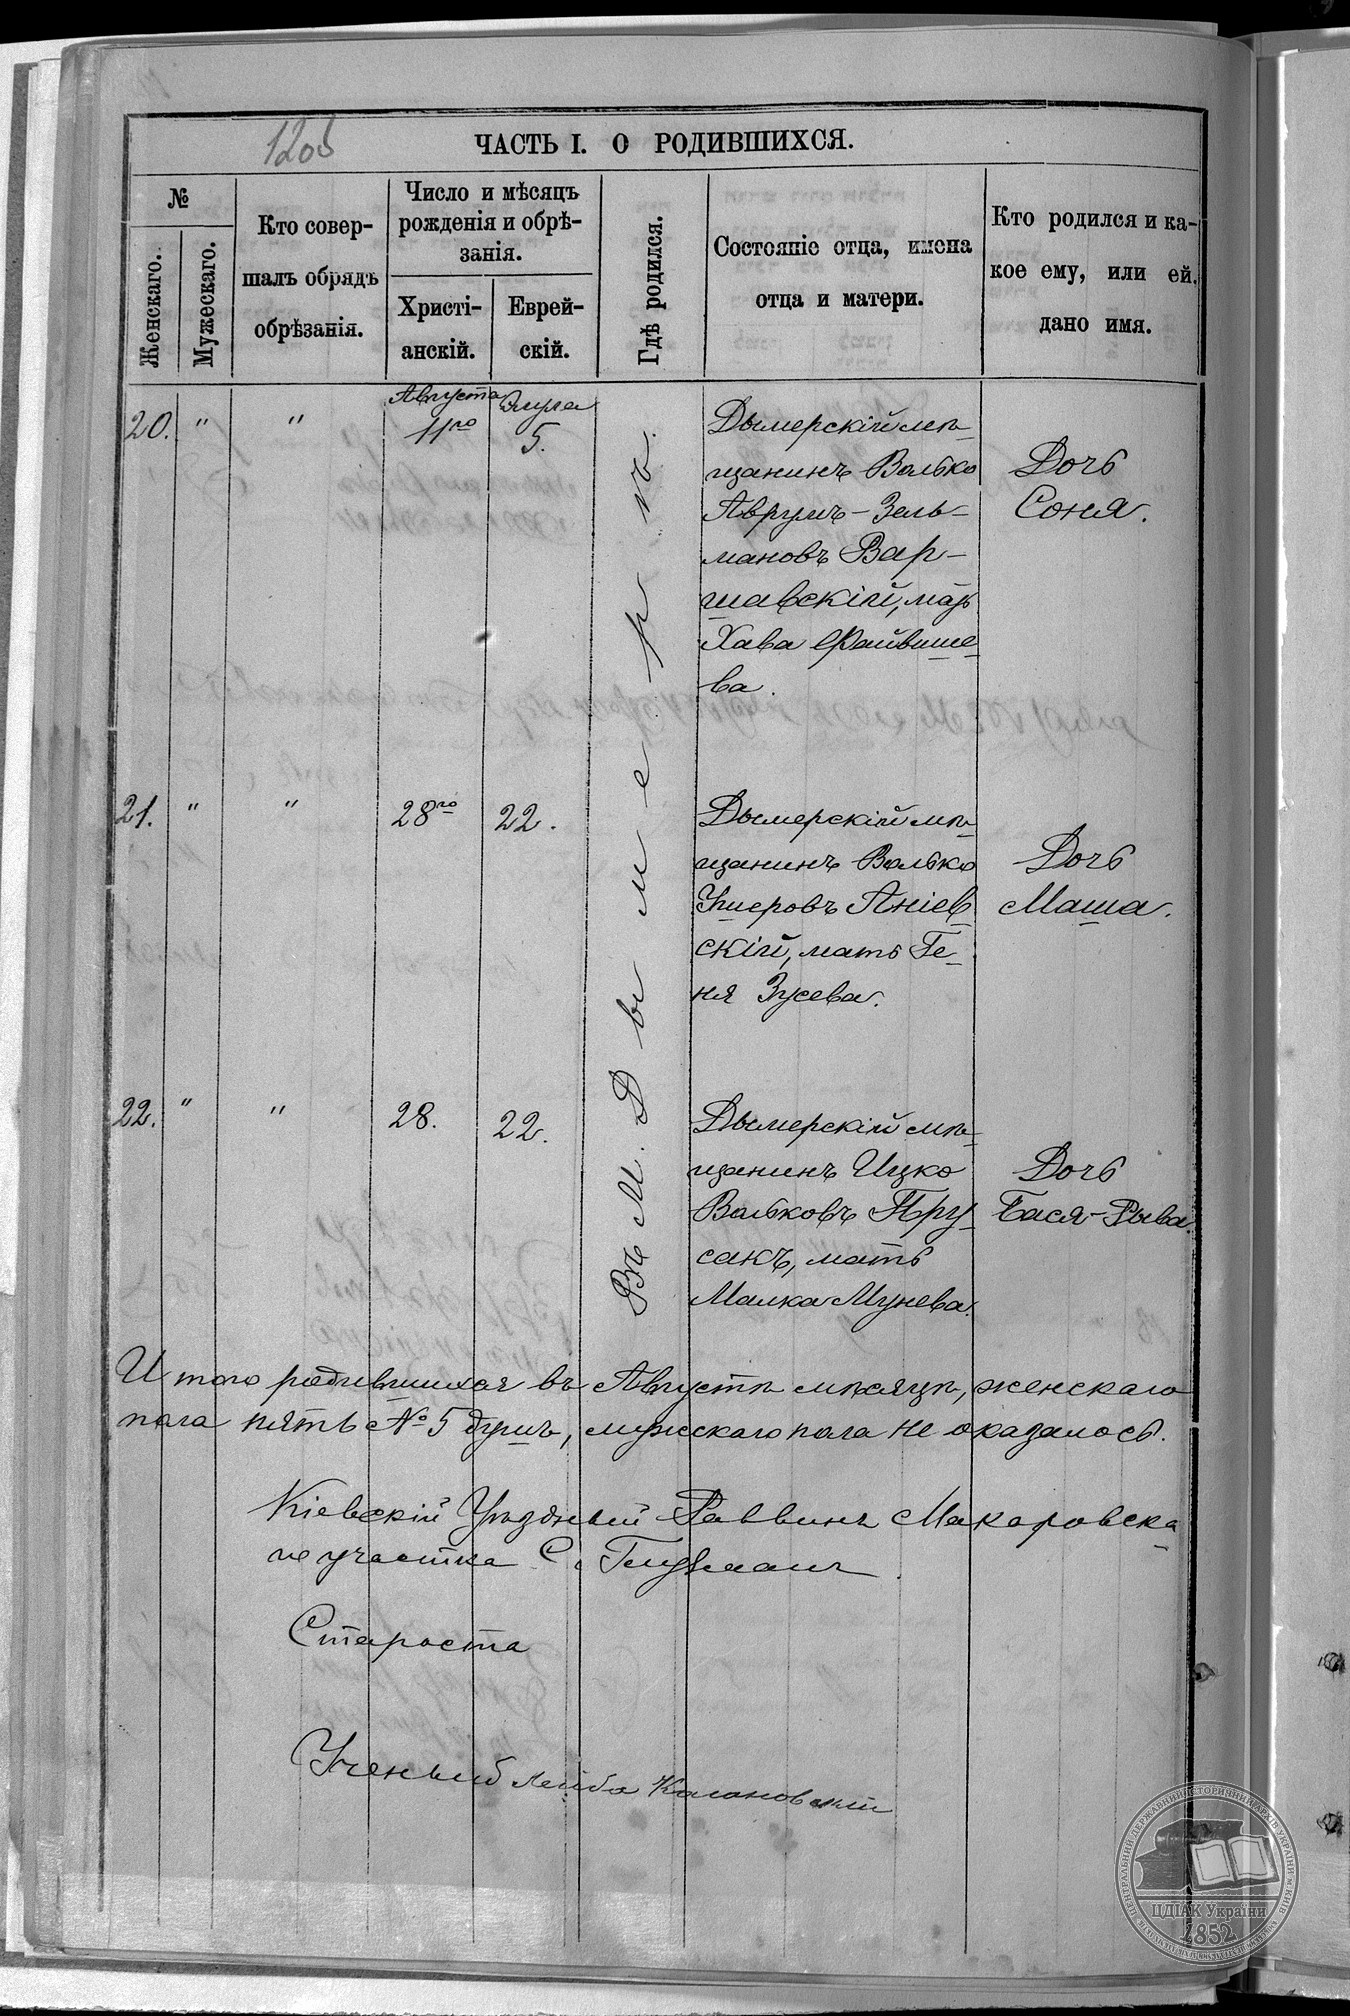 ЧАСТЬ I. О РОДИВШИХСЯ.
№
Женскаго.
Мужескаго.
Кто совер-
шалъ обрядъ
обрѣзанія.
Число и мѣсяцъ
рожденія и обрѣ-
занія.
Христі-
анскій.
Еврей-
скій.
Гдѣ родился.
Состояніе отца, имена
отца и матери.
Кто родился и ка-
кое ему, или ей,
дано имя.
Въ М. Дымерѣ.
20. " "
Августа
11го
Элула
5.
Дымерскій мѣ-
щанинъ Волько
Аврумъ-Зель-
мановъ Вар-
шавскій, мать
Хава Файвише-
ва.
Дочь
Соня.
21. " " 28го 22.
Дымерскій мѣ-
щанинъ Волько
Ушеровъ Аніев-
скій, мать Ге-
ня Зусева.
Дочь
Маша.
22. " " 28. 22.
Дымерскій мѣ-
щанинъ Ицко
Вольковъ Пру-
сакъ, мать
Малка Мунева.
Дочь
Бася-Рыва
Итого родившихся въ Августѣ мѣсяцѣ, женскаго
пола пять № 5 душъ, мужскаго пола не оказалось.
Кіевскій Уѣздный Раввинъ Макаровска-
го участка С.
Староста
Ученый Лейба
ЦЕНТРАЛЬНИЙ ДЕРЖАВНИЙ ІСТОРИЧНИЙ АРХІВ УКРАЇНИ м. КИЇВ
ЦДІАК України
1852